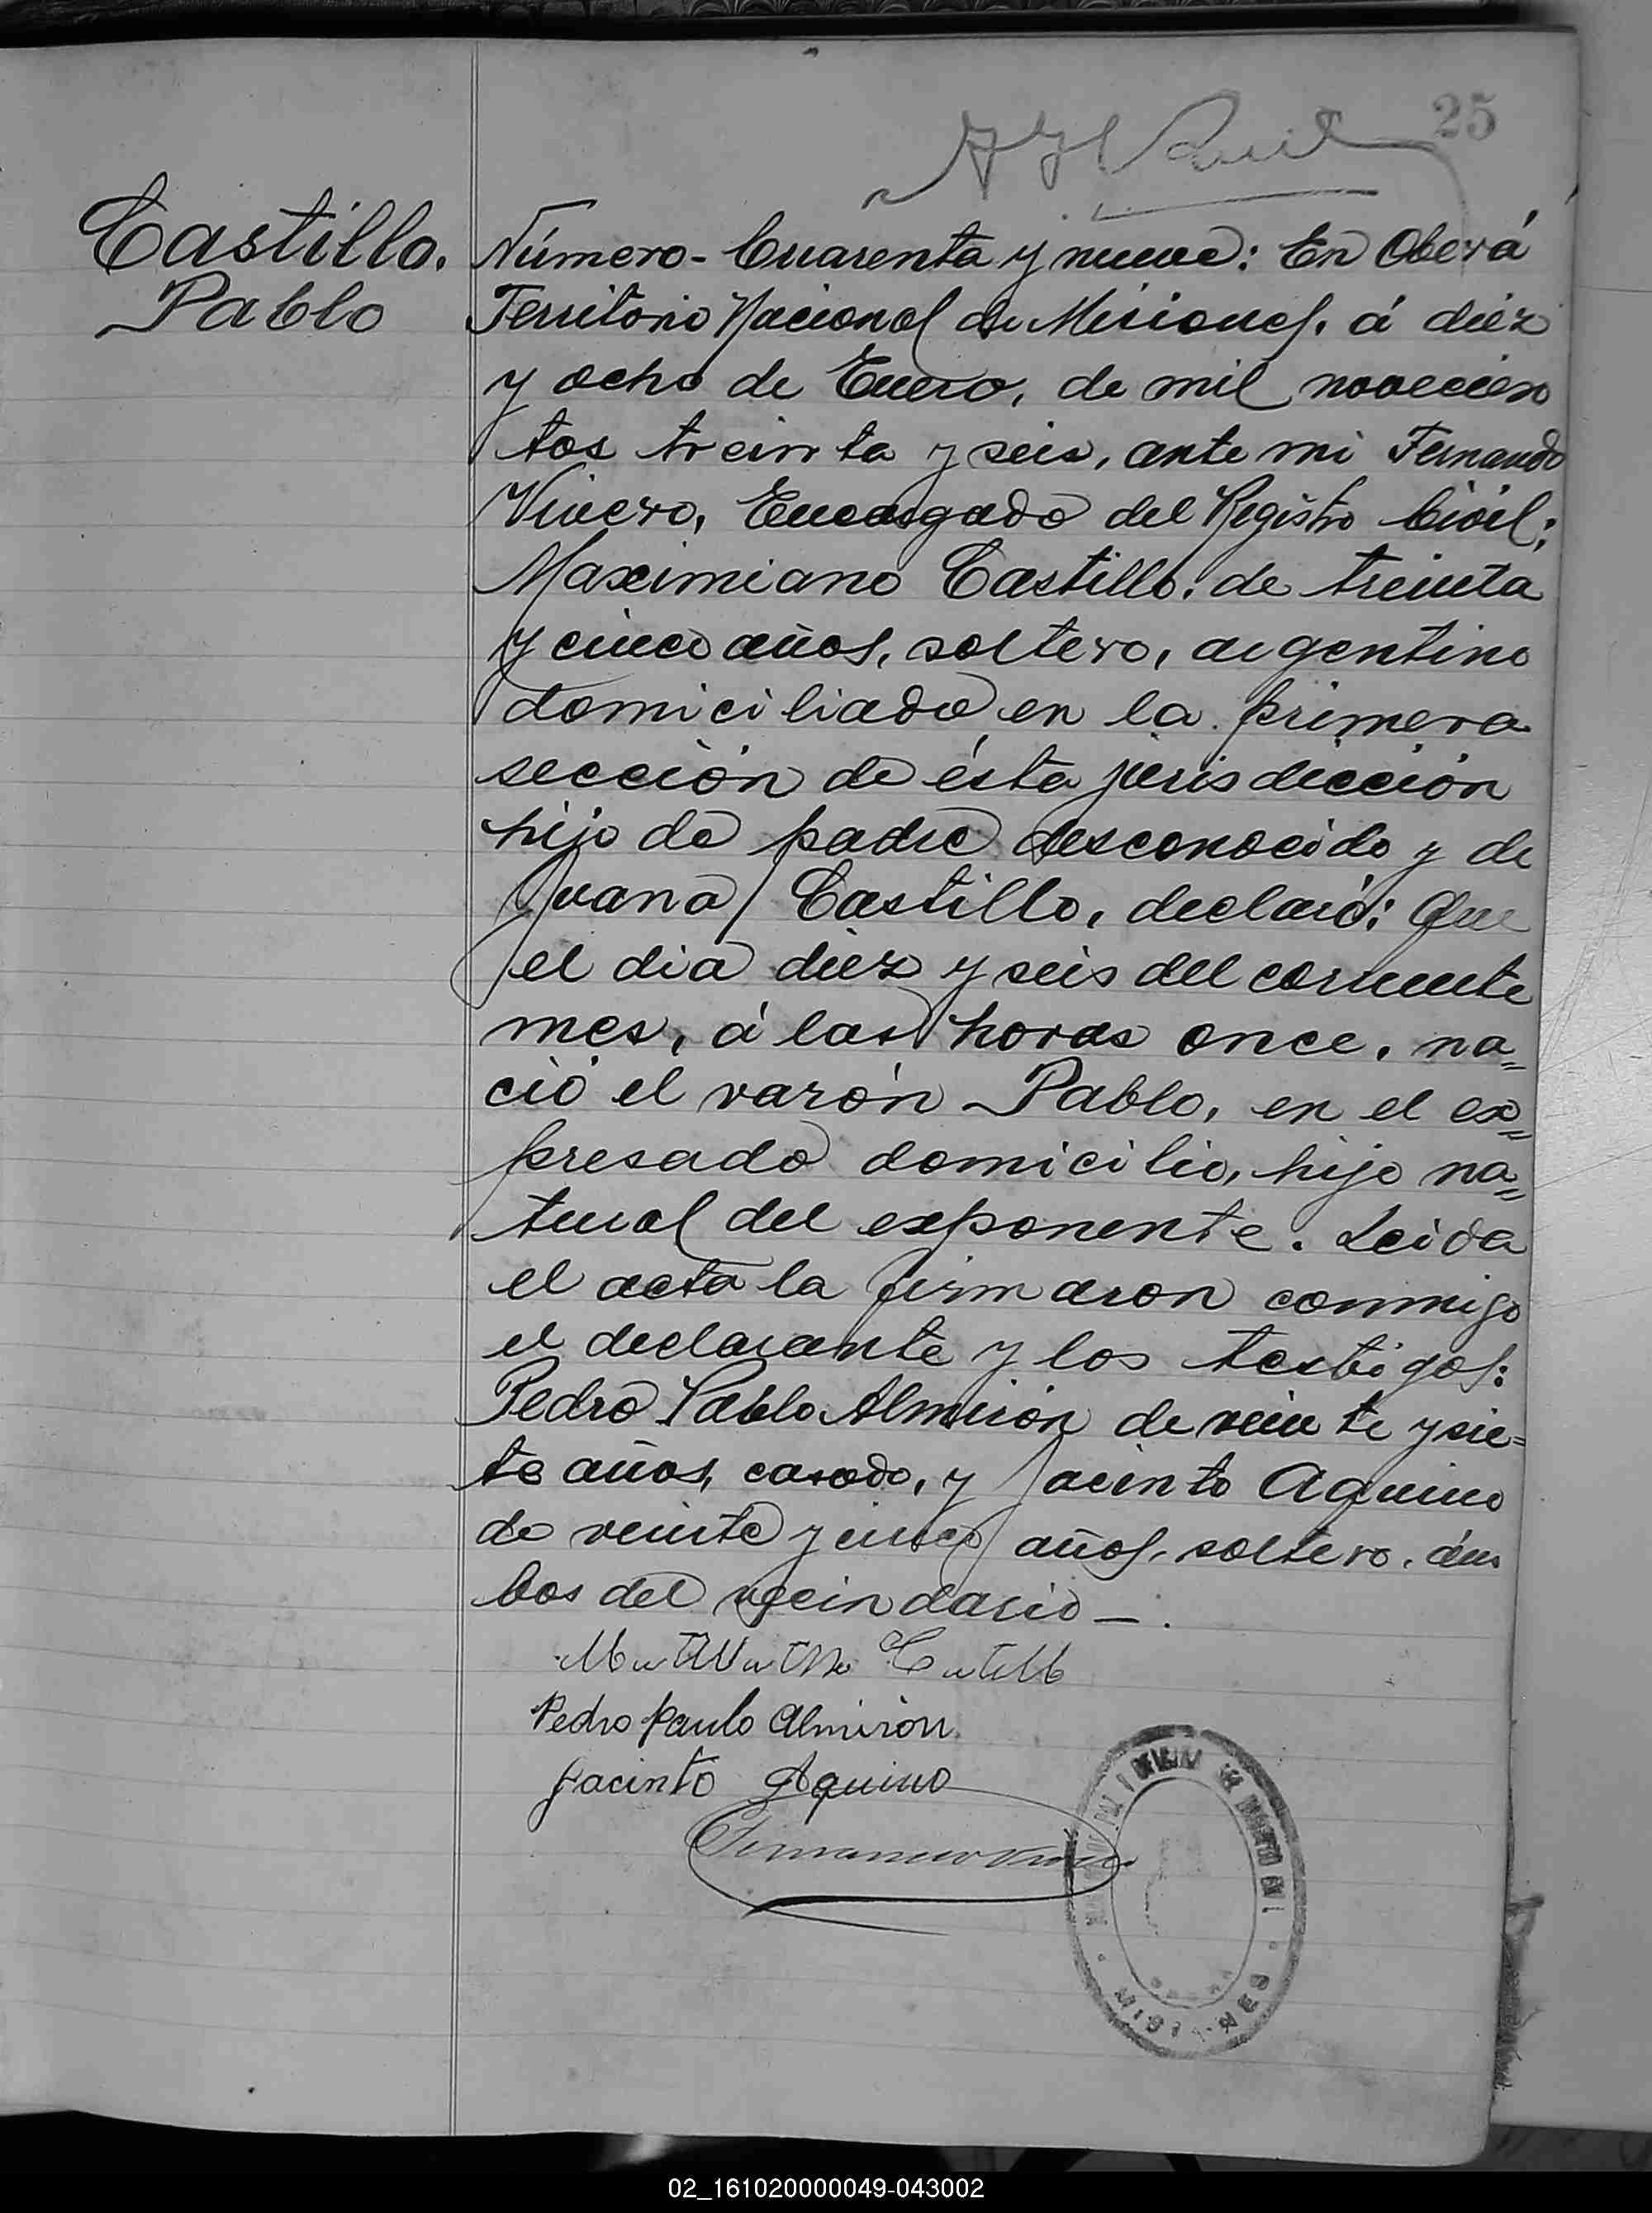 25
Castillo.
Pablo
Número - Cuarenta y nueve: En Oberá
Territorio Nacional de Misiones. á diéz
y ocho de Enero, de mil novecien
tos treinta y seis, ante mi Fernando
Vivero, Encargado del Registro Civil;
Maximiano Castillo. de treinta
y cinco años, soltero, argentino
domiciliado en la primera
sección de ésta jurisdicción
hijo de padre desconocido y de
Juana Castillo, declaró: Que
el dia diez y seis del corriente
mes, á las horas once, na=
ció el varón Pablo, en el ex=
presado domicilio, hijo na=
tural del exponente. Leida
el acta la firmaron conmigo
el declarante y los testigos:
Pedro Pablo Almirón de veinte y sie=
te años, casado, y Jacinto Aquino
de veinte y cinco años, soltero. ám
bos del vecindario —.
Castillo
Pedro Paulo Almirón
Jacinto Aquino
MISIONES
02_161020000049-043002